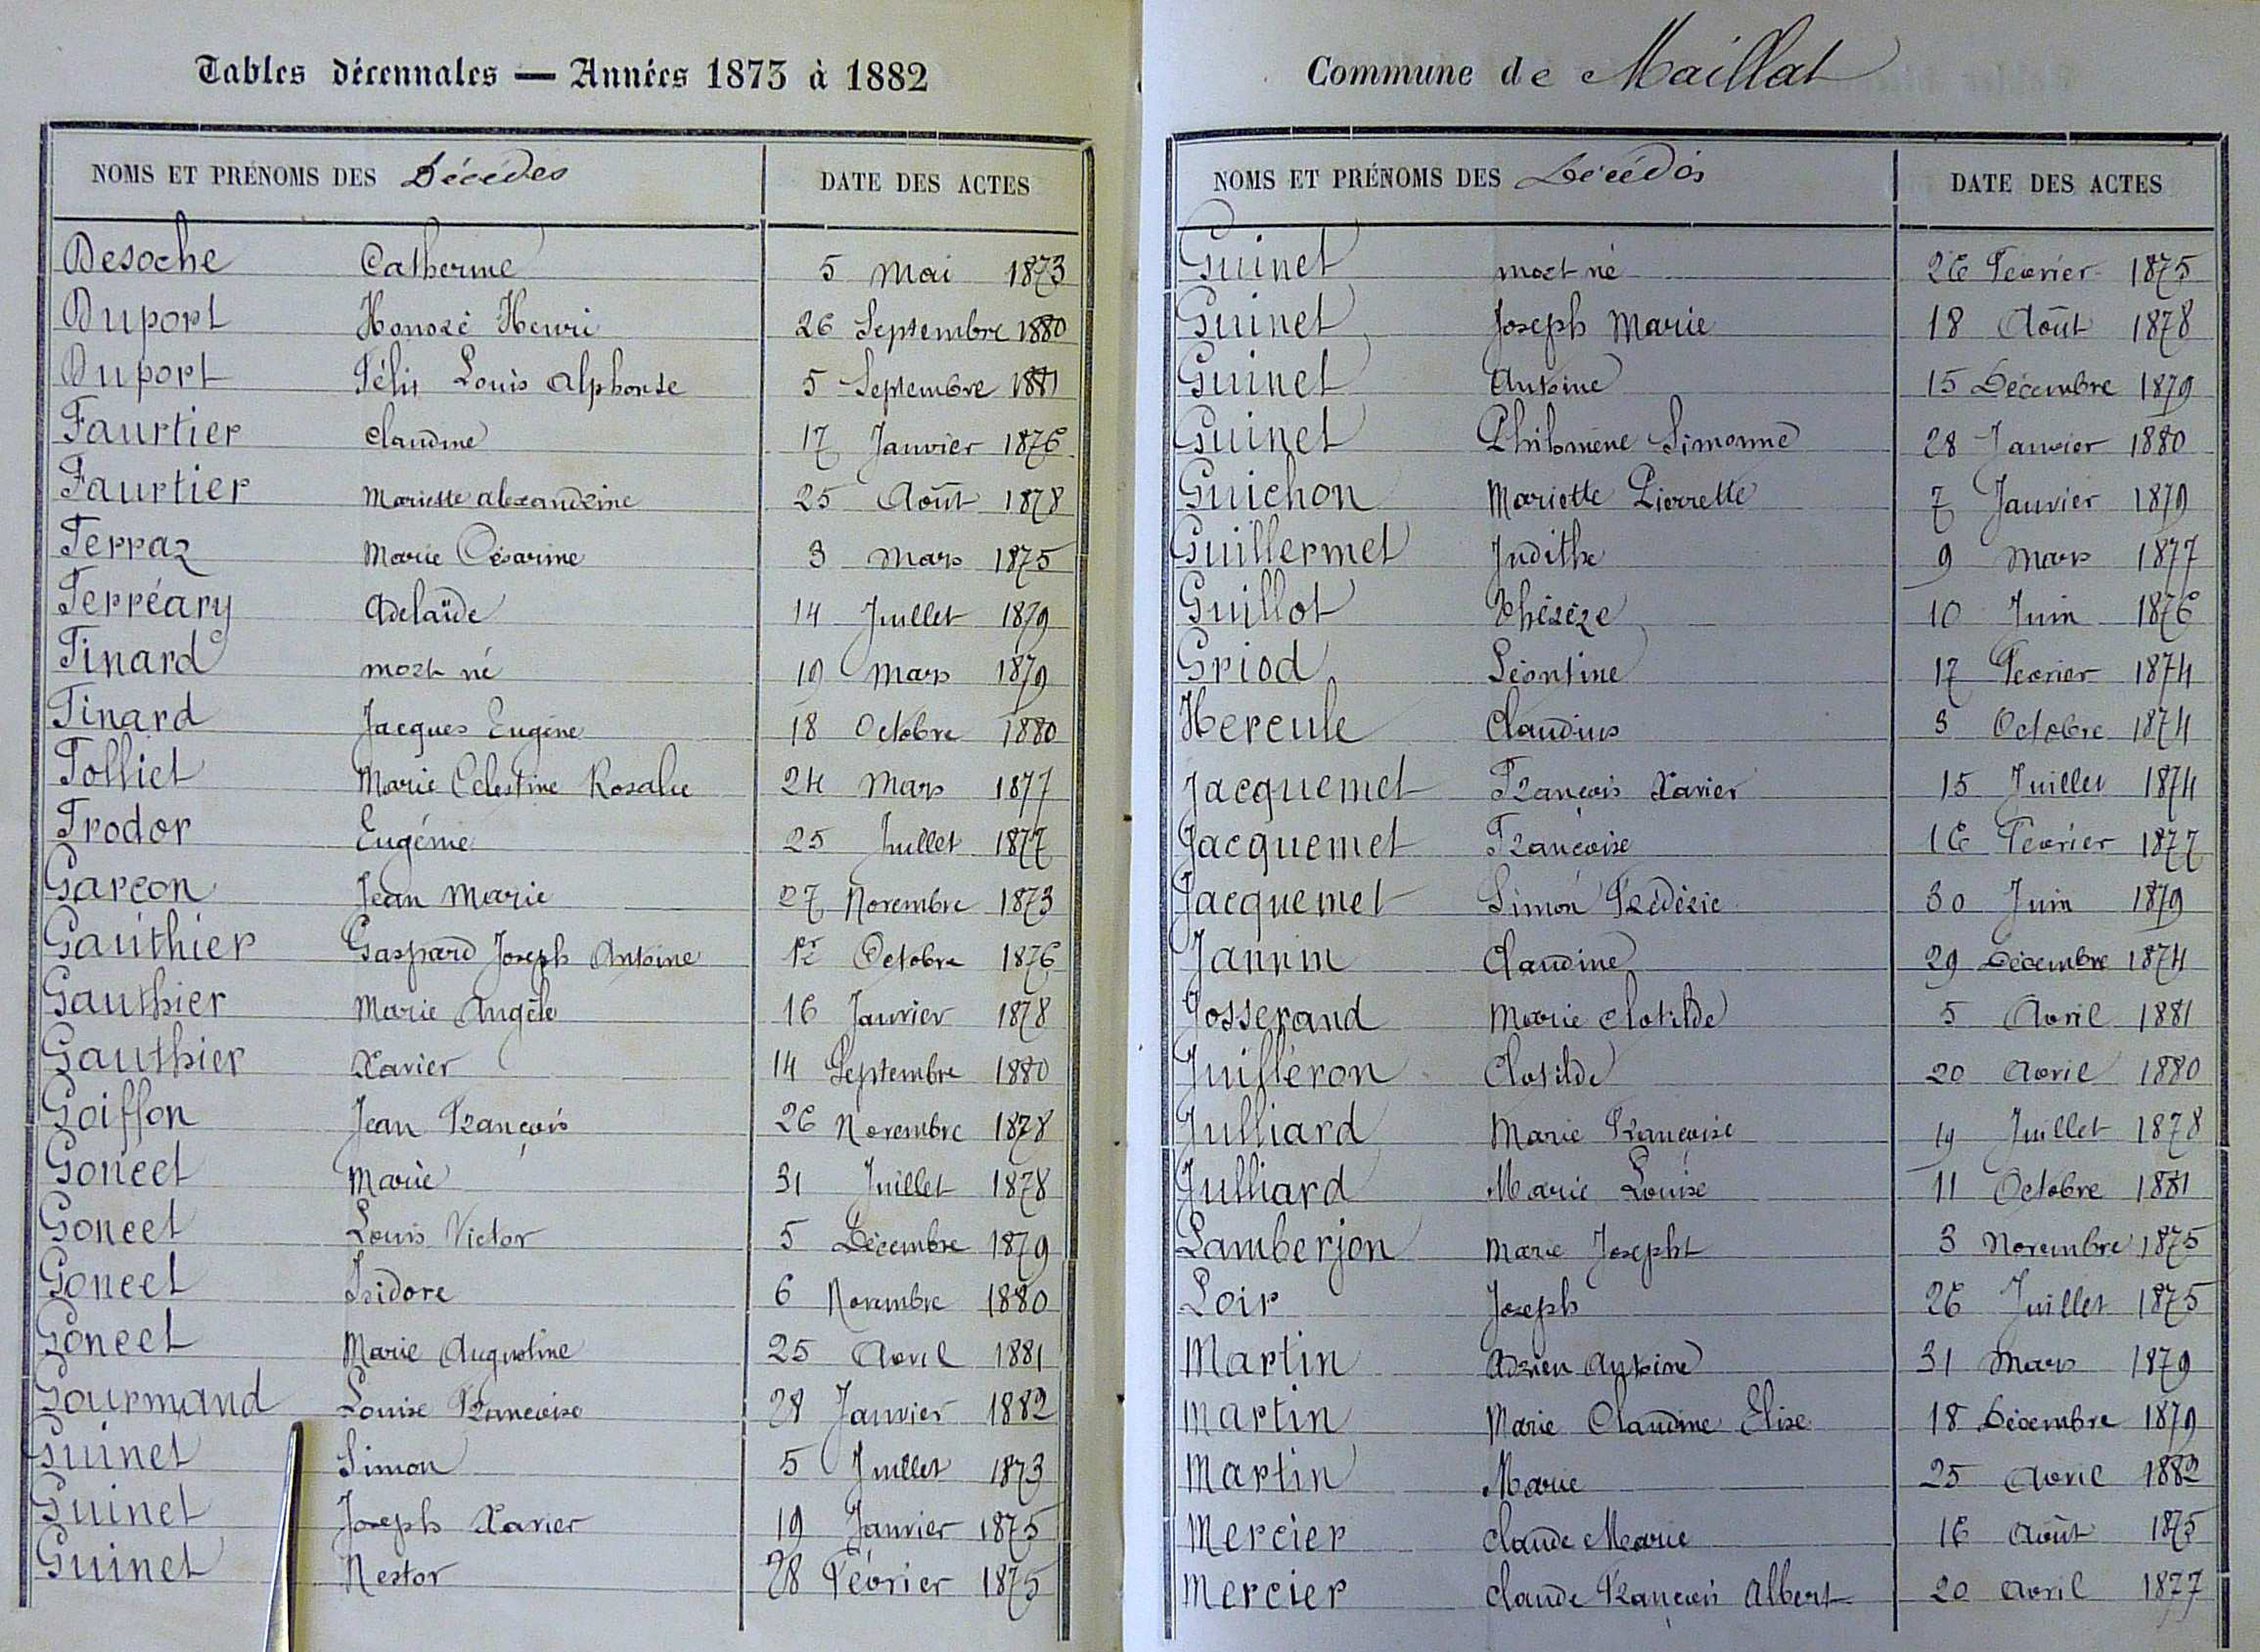 Tables décennales — Années 1873 à 1882
NOMS ET PRÉNOMS DES Décédés DATE DES ACTES
Desoche Catherine 5 Mai 1873
Duport Honoré Henri 26 Septembre 1880
Duport Félix Louis Alphonse 5 Septembre 1881
Faurtier Claudine 17 Janvier 1876
Faurtier Mariette Alexandrine 25 Août 1878
Ferraz Marie Césarine 3 Mars 1875
Ferréary Adelaïde 14 Juillet 1879
Finard mort né 19 Mars 1879
Finard Jacques Eugène 18 Octobre 1880
Folliet Marie Celestine Rosalie 24 Mars 1877
Frodor Eugénie 25 Juillet 1877
Garcon Jean Marie 27 Novembre 1873
Gauthier Gaspard Joseph Antoine Octobre 1876
Gauthier Marie Angèle 16 Janvier 1878
Gauthier Xavier 14 Septembre 1880
Goiffon Jean François 26 Novembre 1878
Goncet Marie 31 Juillet 1878
Goncet Louis Victor 5 Décembre 1879
Goncet Isidore 6 Novembre 1880
Goncet Marie Augustine 25 Avril 1881
Gourmand Louise Francoise 28 Janvier 1882
Guinet Simon 5 Juillet 1873
Guinet Joseph Xavier 19 Janvier 1875
Guinet Nestor 28 Février 1875
Commune de Maillat
NOMS ET PRÉNOMS DES Décédés DATE DES ACTES
Guinet mort né 26 Fevrier 1875
Guinet Joseph Marie 18 Août 1878
Guinet Antoine 15 Décembre 1879
Guinet Philomène Simonne 28 Janvier 1880
Guichon Mariette Pierrette 7 Janvier 1879
Guillermet Judithe 9 Mars 1877
Guillot Thérèze 10 Juin 1876
Griod Léontine 17 Fevrier 1874
Hercule Claudius 3 Octobre 1874
Jacquemet François Xavier 15 Juillet 1874
Jacquemet Françoise 16 Fevrier 1877
Jacquemet Simon Frédéric 30 Juin 1879
Jannin Claudine 29 Décembre 1874
Josserand Marie Clotilde 5 Avril 1881
Juilléron Clotilde 20 Avril 1880
Julliard Marie Francoise 19 Juillet 1878
Julliard Marie Louise 11 Octobre 1881
Lamberjon Marie Josepht 3 Novembre 1875
Loir Joseph 26 Juillet 1875
Martin Adrien Antoine 31 Mars 1879
Martin Marie Claudine Elise 18 Décembre 1879
Martin Marie 25 Avril 1882
Mercier Claude Marie 16 Août 1875
Mercier Claude François Albert 20 Avril 1877